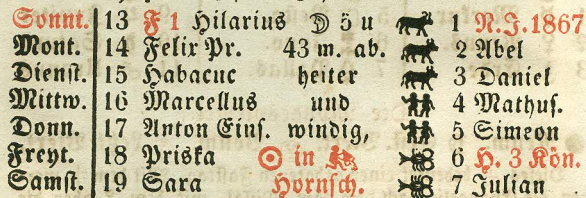 Sonnt. 13 F 1 Hilarius ☽ 5 u 1 N.J.1867
Mont. 14 Felix Pr. 43 m. ab. 2 Abel
Dienst. 15 Habacuc heiter 3 Daniel
Mittw. 16 Marcellus und 4 Mathus.
Donn. 17 Anton Eins. windig, 5 Simeon
Freyt. 18 Priska ☉ in 6 H. 3 Kön.
Samst. 19 Sara Hornsch. 7 Julian